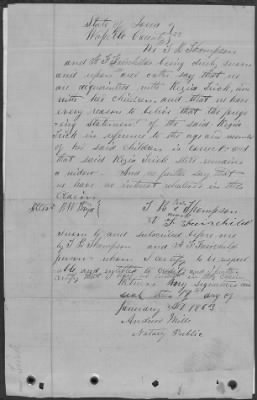 State of Iowa }
Wapello County } ss
We T. R. Thompson
and A F Fairchilds being duly sworn
and upon our oaths say that we
are acquainted with Kezia Trick,
with his children, and that we have
every reason to believe that the foreg-
oing statement of the said Kezia
Trick in reference to the ages and names
of his said children is correct and
that said Kezia Trick still remains
a widow. And we further say that
we have no interest whatever in this
claim
Attest T. R. Thompson
A F Fairchild
Sworn to and subscribed before me
by T R Thompson and A F Fairchild
persons whom I certify to be respect
able and entitled to credit and I further
certify that I have no interest in this claim
Witness my signature and
seal this 19th day of
January AD 1863
Andrew Mills
Notary Public